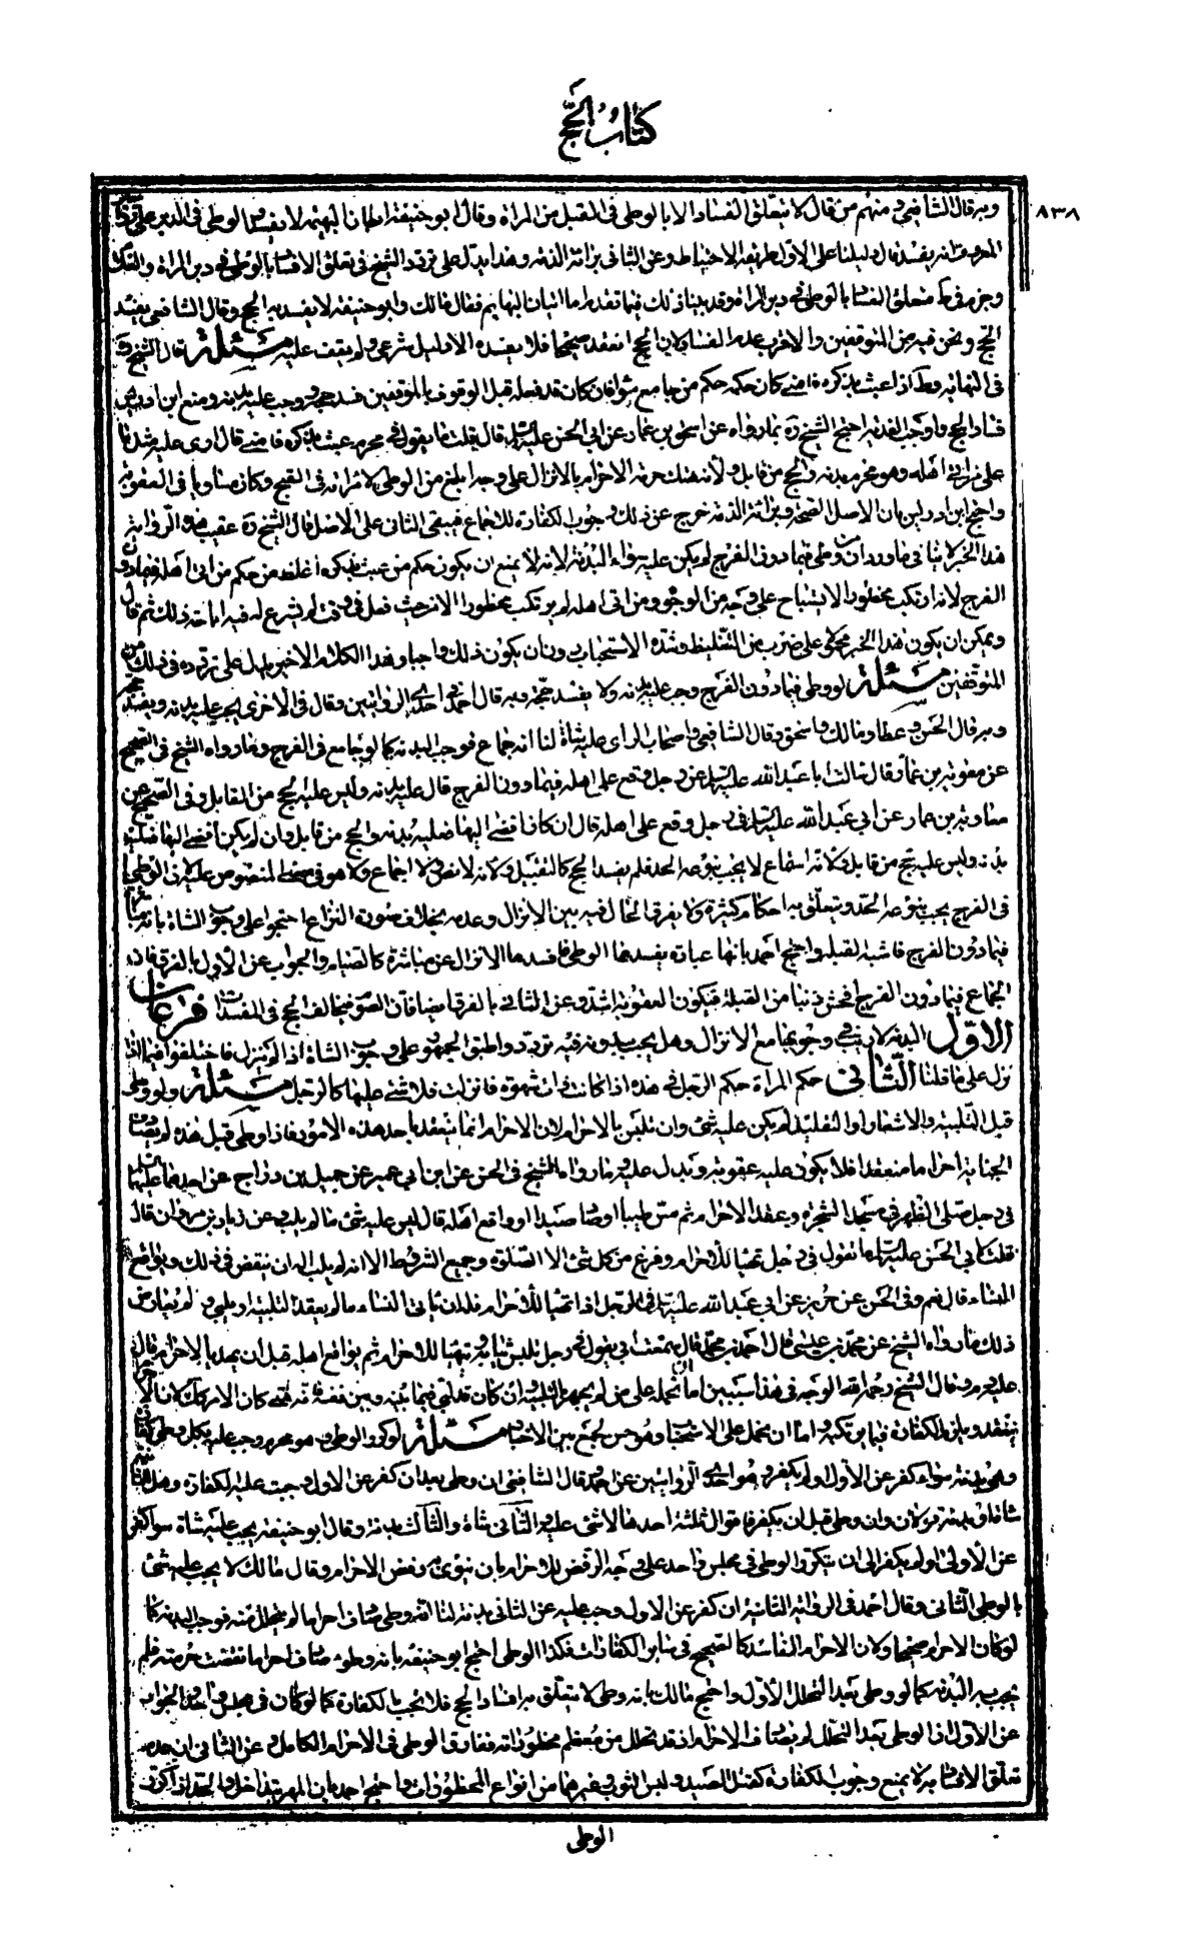 كتاب الحج
٨٣٨
وبه قال الشافعي ومنهم من قال لا يتعلق الفساد الا بالوطي في القبل من المراة وقال ابو حنيفة اتيان البهيمة لا يفسد والوطي في الدبر على
المعروف انه يفسده قال دليلنا على الاول طريقة الاحتياط وعن الثاني براءة الذمة وهذا يدل على تردد الشيخ في تعلق الافساد بالوطي في دبر المراة و
وجزم في ط بتعلق الفساد بالوطي في دبر المراة وقد بينا ذلك فيما تقدم اما اتيان البهايم فقال مالك وابو حنيفة لا يفسد به الحج وقال الشافعي يفسد
الحج ونحن فيه من المتوقفين والاقرب عدم الفساد لان الحج انعقد صحيحا فلا يفسده الا دليل شرعي ولم يقف عليه مسئلة قال الشيخ ره
في النهاية وط اذا عبث بذكره فامنى كان حكمه حكم من جامع سواء فان كان قد فعله قبل الوقوف بالموقفين فسد حجه ووجب عليه بدنة ومنع ابن ادريس
فساد الحج واوجب الفدية احتج الشيخ ره بما رواه عن اسحق بن عمار عن ابي الحسن عليه السلم قال قلت ما يقول في محرم عبث بذكره فامنى قال ارى عليه مثل ما
على من اتى اهله وهو محرم بدنة والحج من قابل ولانه هتك حرمة الاحرام بالانزال على وجه ابلغ من الوطي لاقترانه في القبح وكان مساويا في العقوبة
واحتج ابن ادريس بان الاصل الصحة وبراءة الذمة خرج عن ذلك وجوب الكفارة للاجماع فيبقى الثاني على الاصل قال الشيخ ره عقيب هذه الرواية
هذا الخبر لا ينافي ما وردان وطي فيما دون الفرج لم يكن عليه سواء البدنة لانه لا يمتنع ان يكون حكم من عبث بذكره اغلظ من حكم من اتى اهله فيما دون
الفرج لانه ارتكب محظورا لا يستباح على وجه من الوجوه ومن اتى اهله لم يرتكب محظورا الا من حيث فعل في وقت لم يشرع له فيه اباحة ذلك ثم قال
ويمكن ان يكون هذا الخبر محمولا على ضرب من التغليظ وشدة الاستحباب دون ان يكون ذلك واجبا وهذا الكلام الاخير يدل على تردده في ذلك
المتوقفين مسئلة لو وطي فيما دون الفرج وجب عليه بدنة ولا يفسد حجه وبه قال احمد في احدى الروايتين وقال في الاخرى يجب عليه بدنة ويفسد حجه
وبه قال الحسن وعطا ومالك واسحق وقال الشافعي واصحاب الراى عليه شاة لنا انه جماع فوجب البدنة كما لو جامع في الفرج وما رواه الشيخ في الصحيح
عن معوية بن عمار قال سالت ابا عبد الله عليه السلم عن رجل وقع على اهله فيما دون الفرج قال عليه بدنة وليس عليه الحج من القابل وفي الصحيح عن
معاوية بن عمار عن ابي عبد الله عليه السلم في رجل وقع على اهله قال ان كان افضى اليها فعليه بدنة والحج من قابل وان لم يكن افضى اليها فعليه
بدنة وليس عليه حج من قابل ولانه استمتاع لا يجب بنوعه الحد فلم يفسد الحج كالتقبيل ولانه لا نص ولا اجماع ولا هو في معنى المنصوص عليه لان الوطي
في الفرج يجب بنوعه الحد ويتعلق به احكام كثيرة ولا يفرق الحال فيه بين الانزال وعدمه بخلاف صورة النزاع احتجوا على وجوب الشاة بانه
فيما دون الفرج فاشبه القبلة واحتج احمد بانها عبادة يفسدها الوطي فافسدها الانزال عن مباشرة كالصيام والجواب عن الاول بالفرق فان
الجماع فيما دون الفرج افحش ذنبا من القبلة فيكون العقوبة اشد وعن الثاني بالفرق ايضا فان الصوم يخالف الحج في المفسدات فرعان
الاول البدنة لا ريب في وجوبها مع الانزال وهل يجب بدونه فيه تردد واطبق الجمهور على وجوب الشاة اذا لم ينزل فاختلفوا فيما اذا
نزل على ما قلنا الثاني حكم المراة حكم الرجل في هذه اذا كانت ذات شهوة فانزلت فلا شيء عليها كالرجل مسئلة ولو وطي
قبل التلبية والاشعار او التقليد لم يكن عليه شئ وان تلبس بالاحرام لان الاحرام انما ينعقد باحد هذه الامور فاذا وطي قبل هذه لم يصادف
الجناية احراما منعقدا فلا يكون عليه عقوبة ويدل عليه ما رواه الشيخ في الحسن عن ابن ابي عمير عن جميل بن دراج عن احدهما عليهما
في رجل صلى الظهر في مسجد الشجرة وعقد الاحرام ثم مس طيبا او صاد صيدا او واقع اهله قال ليس عليه شئ ما لم يلب وعن زياد بن مروان قال
قلت لابي الحسن عليه السلم ما تقول في رجل تهيا للاحرام وفرغ من كل شئ الا الصلوة وجميع الشروط الا انه لم يلب اله ان ينقض ذلك ويواقع
النساء قال نعم وفي الحسن عن حريز عن ابي عبد الله عليه السلم في الرجل اذا تهيا للاحرام فله ان ياتي النساء ما لم يعقد التلبية او يلبي ولا يعارض
ذلك ما رواه الشيخ عن محمد بن عيسى قال احمد بن محمد قال سمعت ابي يقول في رجل يلبس ثيابه ويتهيا للاحرام ثم يواقع اهله قبل ان يهل بالاحرام قال
عليه دم وقال الشيخ رحمه الله الوجه في هذا شيئين اما ان نحمله على من لم يجهر بالتلبية ان كان قد لبى فيما بينه وبين نفسه فانه متى كان الامر كذلك كان الاحرام
ينعقد ويلزم الكفارة فيما يرتكبه واما ان يحمل على الاستحباب وهو حسن لجمع بين الاخبار مسئلة لو كرر الوطي وهو محرم وجب عليه بكل وطي كفارة
وهي بدنة سواء كفر عن الاول او لم يكفر وهو احدى الروايتين عن احمد وقال الشافعي ان وطي بعد ان كفر عن الاول وجبت عليه الكفارة وهل الكفارة
شاة او بدنة قولان وان وطي قبل ان يكفر فاقوال ثلثة احدها لا شئ عليه والثاني شاة والثالث بدنة وقال ابو حنيفة يجب عليه شاة سواء كفر
عن الاول او لم يكفر الى ان يتكرر الوطي في مجلس واحد على وجه الرفض للاحرام بان ينوي به رفض الاحرام وقال مالك لا يجب عليه شئ
بالوطي الثاني وقال احمد في الرواية الثانية ان كفر عن الاول وجب عليه عن الثاني بدنة لنا انه وطي صادف احراما لم يتحلل منه فوجب البدنة كما
لو كان الاحرام صحيحا ولان الاحرام الفاسد كالصحيح في ساير الكفارات فكذا الوطي احتج ابو حنيفة بانه وطوء صادف احراما نقصت حرمته فلم
يجب به البدنة كما لو وطي بعد التحلل الاول واحتج مالك بانه وطي لا يتعلق به افساد الحج فلا يجب به الكفارة كما لو كان في مجلس واحد والجواب
عن الاول ان الوطي بعد التحلل لم يصادف الاحرام اذ قد تحلل من معظم محظوراته ففارق الوطي في الاحرام الكامل وعن الثاني ان عدم
تعلق الافساد به لا يمنع وجوب الكفارة كقتل الصيد ولبس الثوب وغيرهما من انواع المحظورات واحتج احمد بان المهر يتداخل والحد اذا تكرر
الوطي